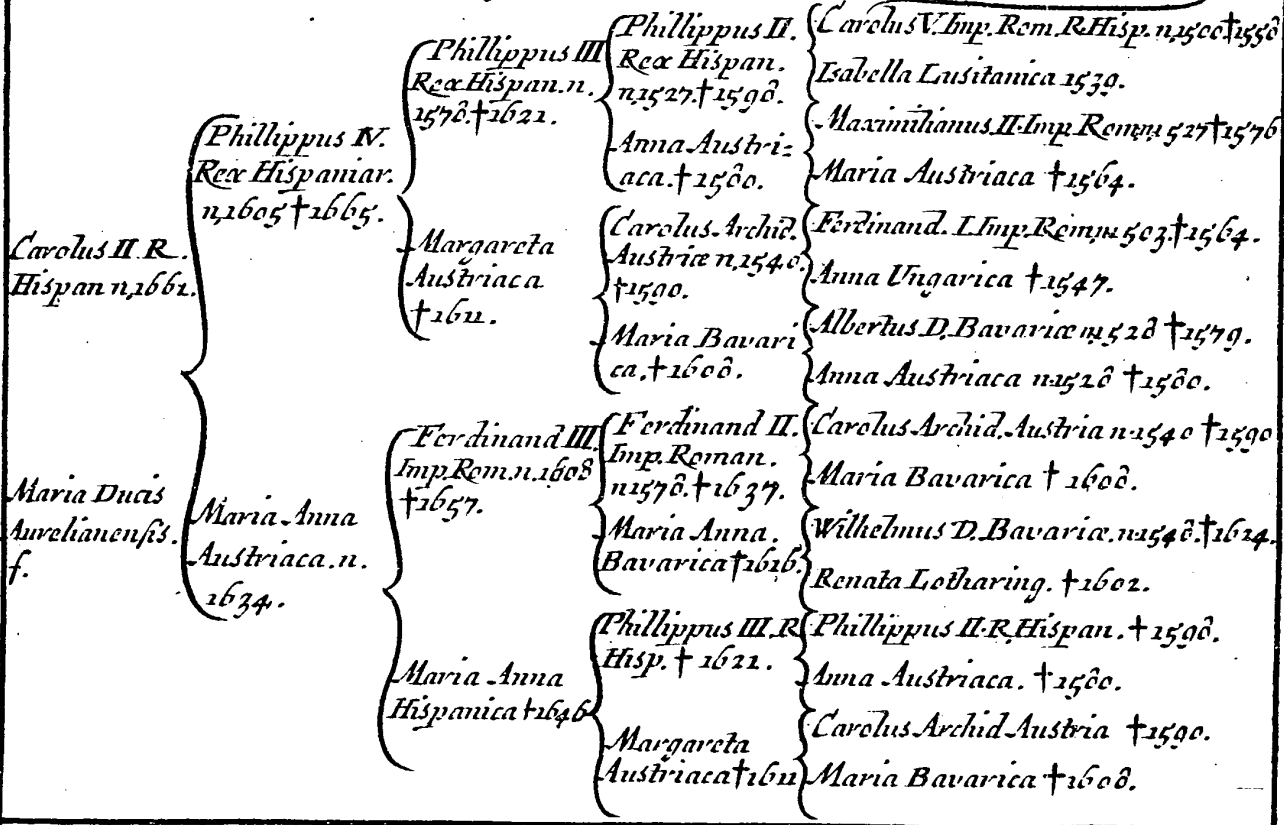 Carolus II. R.
Hispan n,1661.
Maria Ducis
Aurelianensis.
f.
Phillippus IV.
Rex Hispaniar.
n,1605 †1665.
Maria Anna
Austriaca. n.
1634.
Phillippus III
Rex Hispan. n.
1578. †1621.
Margareta
Austriaca
†1611.
Ferdinand III.
Imp. Rom. n. 1608
†1657.
Maria Anna
Hispanica †1646
Phillippus II.
Rex Hispan.
n,1527. †1598.
Anna Austri=
aca. †1580.
Carolus Archid.
Austriæ n,1540.
†1590.
Maria Bavari
ca. †1608.
Ferdinand II.
Imp. Roman.
n1578. †1637.
Maria Anna.
Bavarica †1616.
Phillippus III. R
Hisp. † 1621.
Margareta
Austriaca †1611
Carolus V. Imp. Rom. R. Hisp. n,1500 †1558
Isabella Lusitanica 1539.
Maximilianus II. Imp Rom n1527 †1576
Maria Austriaca †1564.
Ferdinand. I. Imp. Rom. n1503. †1564.
Anna Ungarica †1547.
Albertus D. Bavariæ n1528 †1579.
Anna Austriaca n1528 †1580.
Carolus Archid. Austria n1540 †1590
Maria Bavarica † 1608.
Wilhelmus D. Bavariæ. n1548. †1624.
Renata Lotharing. †1602.
Phillippus II. R. Hispan. †1598.
Anna Austriaca. †1580.
Carolus Archid Austria †1590.
Maria Bavarica †1608.